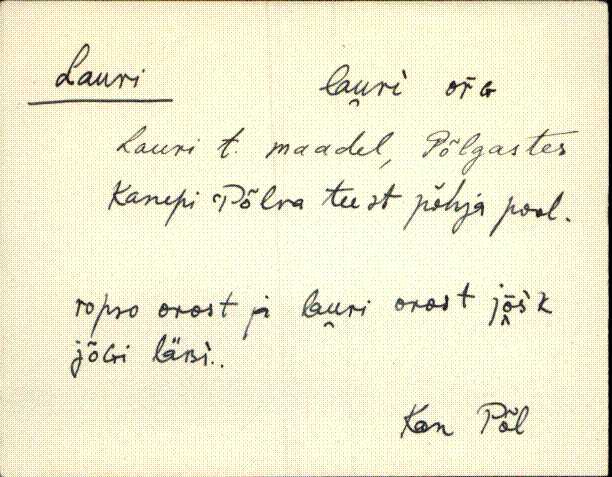 Lauri lau̯ri̬ or̄ɢ
Lauri t. maadel, Põlgastes
Kanepi Põlva teest põhja pool.
ropso orost ja lau̯ri orost jō̭š́k
jõGi läBi.
Kan Põl